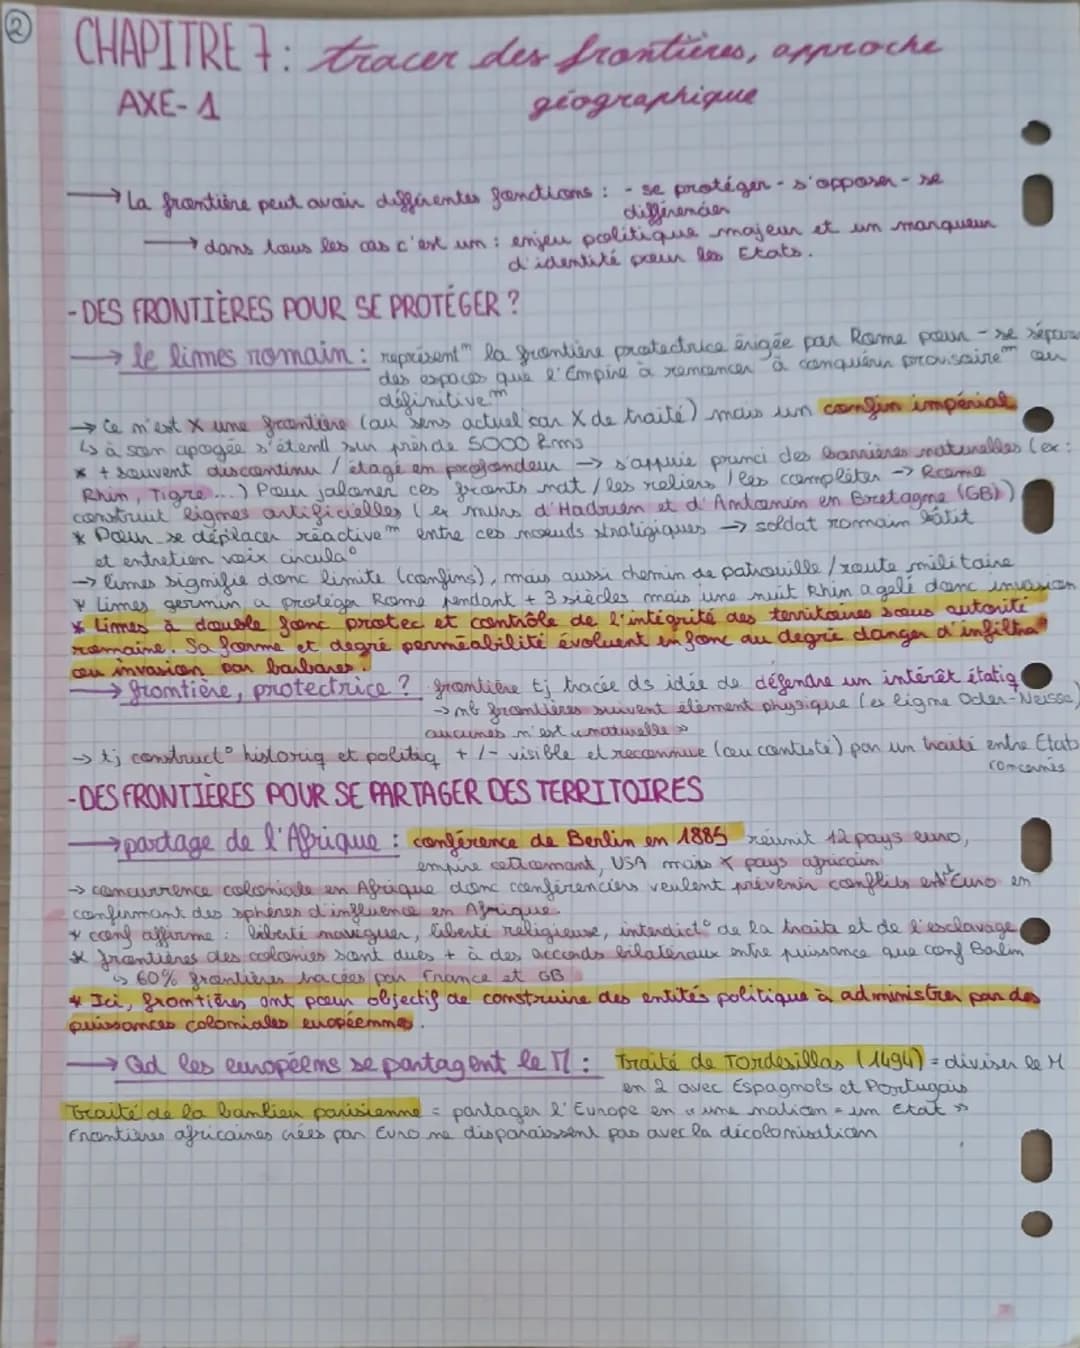 ②
CHAPITRE 7: tracer des frontières, approche
AXE-1 géographique
→ La frontière peut avoir différentes fonctions : - se protéger - s'opposer - se
différencier
→ dans tous les cas c'est un : enjeu politique majeur et un marqueur
d'identité pour les Etats.
- DES FRONTIÈRES POUR SE PROTÉGER ?
→ le limes romain : représent^m la frontière protectrice érigée par Rome pour - se sépare
des espaces que l'Empire a renoncer à conquérir provisaire^m ou
définitive^m
→ Ce n'est X une frontière (au sens actuel car X de traité) mais un confin impérial
↳ à son apogée s'étend sur près de 5000 kms
* + souvent discontinu / étagé en profondeur → s'appuie princi des barrières naturelles (ex :
Rhin, Tigre ...) Pour jalonner ces fronts nat / les reliers / les compléter → Rome
construit lignes artificielles (ex murs d'Hadrien et d'Antonin en Bretagne (GB))
* Pour se déplacer réactive^m entre ces nœuds stratigiques → soldat romain bâtit
et entretien voix circula°
→ limes signifie donc limite (confins), mais aussi chemin de patrouille / route militaire
* Limes germin, a protéger Rome pendant + 3 siècles mais une nuit Rhin a gelé donc invasion
* Limes à double fonc protec et contrôle de l'intégrité des territoires sous autorité
romaine. Sa forme et degré perméabilité évoluent en fonc du degré danger d'infiltra°
ou invasion par barbares.
→ frontière, protectrice ? frontière tj tracée ds idée de défendre un intérêt étatiq
→ nb frontières suivent élément physique (ex ligne Oder-Neisse)
aucunes n'est « naturelle »
→ tj construct° historiq et politiq + / - visible et reconnue (ou contesté) par un traité entre Etats
concernés
- DES FRONTIÈRES POUR SE PARTAGER DES TERRITOIRES
→ partage de l'Afrique : conférence de Berlin en 1885 réunit 12 pays euro,
empire ottomant, USA mais X pays africain
→ concurrence coloniale en Afrique donc conférenciers veulent prévenir conflits entre Euro en
confirmant des sphères d'influence en Afrique.
* conf affirme : liberté naviguer, liberté religieuse, interdict° de la traite et de l'esclavage
* frontières des colonies sont dues + à des accords bilatéraux entre puissance que conf Berlin
↳ 60% frontières tracées par France et GB
* Ici, frontières ont pour objectif de construire des entités politique à administrer par des
puissances coloniales européennes.
→ Qd les européens se partagent le M : Traité de Tordesillas (1494) = diviser le M
en 2 avec Espagnols et Portugais
Traité de la banlieu parisienne = partager l'Europe en « une nation = un Etat »
Frontières africaines crées par Euro ne disparaissent pas avec la décolonisation